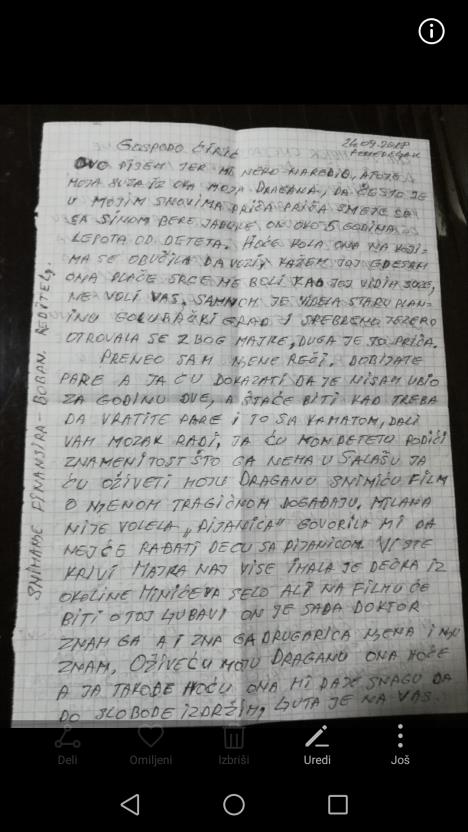 GOSPODO ĆIRIĆ
24.09.2018
PONEDELJAK
OVO PIŠEM JER MI NEKO NAREDIO, A TO JE
MOJA DUŠA IZ OKA MOJA DRAGANA, DA ČESTO JE
U MOJIM SNOVIMA PRIČA PRIČA SMEJE SA
SA SINOM BERE JABUKE ON OKO 5 GODINA
LEPOTA OD DETETA. HOĆE KOLA ONA NA KOJI-
MA SE OBUČILA DA VOZI, KAŽEM JOJ GDE SAM
ONA PLAČE SRCE ME BOLI KAD JOJ VIDIM SUZE,
NE VOLI VAS. SAMNOM JE VIDELA STARU PLAN-
INU GOLUBAČKI GRAD I SREBRENO JEZERO
OTROVALA SE ZBOG MAJKE, DUGA JE TO PRIČA.
PRENEO SAM NJENE REČI. DOBIJATE
PARE A JA ĆU DOKAZATI DA JE NISAM UBIO
ZA GODINU DVE, A ŠTA ĆE BITI KAD TREBA
DA VRATITE PARE I TO SA KAMATOM, DALI
VAM MOZAK RADI, JA ĆU MOM DETETU PODIĆI
ZNAMENITOST ŠTO GA NEMA U SALAŠU JA
ĆU OŽIVETI MOJU DRAGANU SNIMIĆU FILM
O NJENOM TRAGIČNOM DOGAĐAJU. MILANA
NIJE VOLELA „PIJANICA" GOVORILA MI DA
NEJĆE RAĐATI DECU SA PIJANICOM. VI STE
KRIVI MAJKA NAJ VIŠE IMALA JE DEČKA IZ
OKOLINE MINIĆEVA SELO ALI NA FILMU ĆE
BITI O TOJ LJUBAVI ON JE SADA DOKTOR
ZNAM GA A I ZNA GA DRUGARICA NJENA I NJU
ZNAM. OŽIVEĆU MOJU DRAGANU ONA HOĆE
A JA TAKOĐE HOĆU ONA MI DAJE SNAGU DA
DO SLOBODE IZDRŽIM, LJUTA JE NA VAS.
SNIMANJE FINANSIRA - BOBAN. REDITELJ.
Deli
Omiljeni
Izbriši
Uredi
Još